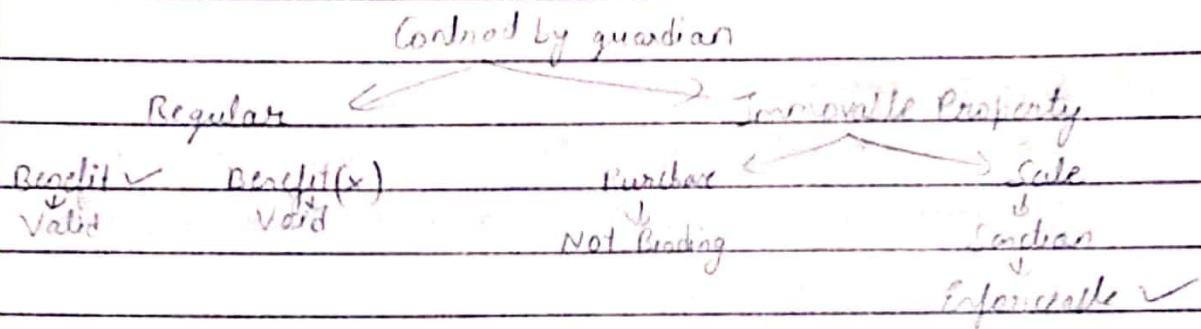 Contract by guardian
Regular Immovable Property
Benefit ✓ Benefit(x) Purchase Sale
↓ ↓ ↓ ↓
Valid Void Not Binding
↓
Enforceable ✓